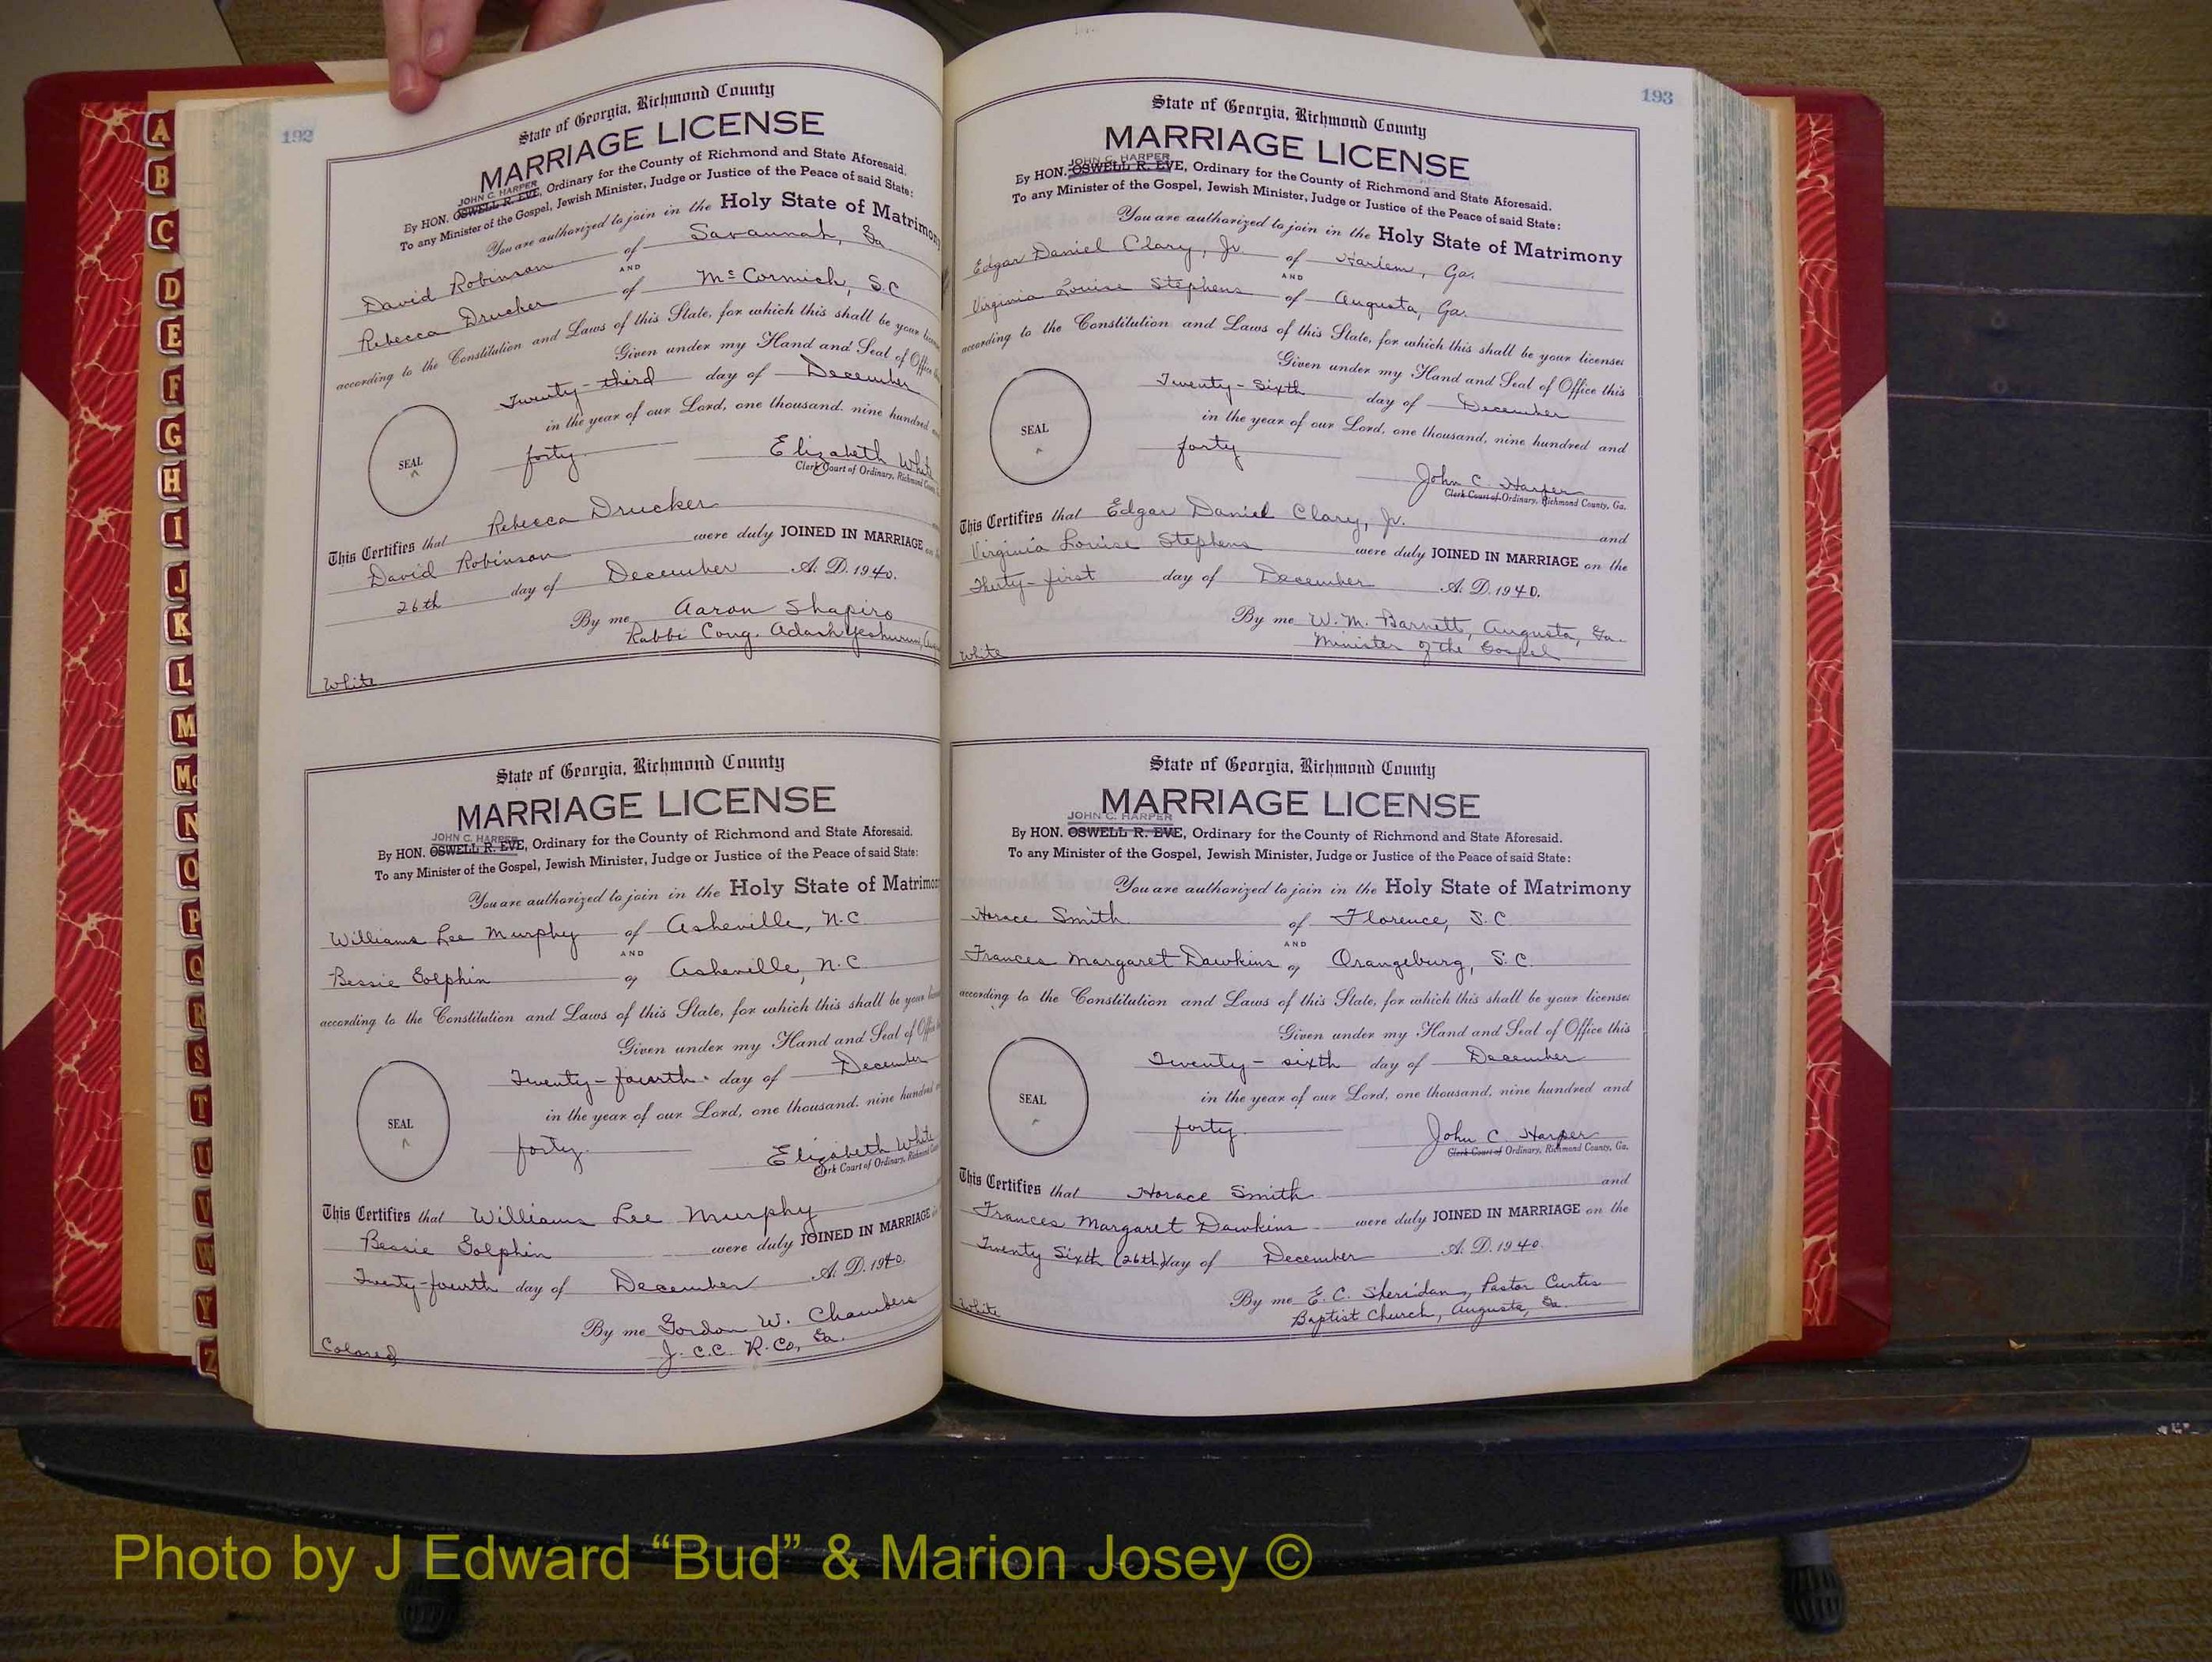 A
B
C
D
E
F
G
H
I
J
K
L
M
Mc
N
O
P
Q
R
S
T
U
V
W
Y
Z
192
State of Georgia, Richmond County
MARRIAGE LICENSE
JOHN C. HARPER
By HON. OSWELL R. EVE, Ordinary for the County of Richmond and State Aforesaid.
To any Minister of the Gospel, Jewish Minister, Judge or Justice of the Peace of said State:
You are authorized to join in the Holy State of Matrimony
David Robinson of Savannah, Ga
AND
Rebecca Drucher of McCormich, S.C
according to the Constitution and Laws of this State, for which this shall be your
Given under my Hand and Seal of Office
Twenty-third day of December
in the year of our Lord, one thousand, nine hundred
SEAL
forty
Elizabeth White
Clerk Court of Ordinary, Richmond
This Certifies that Rebecca Drucker
David Robinson were duly JOINED IN MARRIAGE on
26th day of December A. D. 1940.
By me Aaron Shapiro
Rabbi Cong. Adash Yeshurun,
White
State of Georgia, Richmond County
MARRIAGE LICENSE
JOHN C. HARPER
By HON. OSWELL R. EVE, Ordinary for the County of Richmond and State Aforesaid.
To any Minister of the Gospel, Jewish Minister, Judge or Justice of the Peace of said State:
You are authorized to join in the Holy State of Matrimony
Williams Lee Murphy of Asheville, N.C
AND
Bessie Golphin of Asheville, N.C
according to the Constitution and Laws of this State, for which this shall be your
Given under my Hand and Seal of Office
Twenty-fourth day of December
in the year of our Lord, one thousand, nine hundred
SEAL
forty.
Elizabeth White
Clerk Court of Ordinary, Richmond
This Certifies that Williams Lee Murphy
Bessie Golphin were duly JOINED IN MARRIAGE
Twenty-fourth day of December A. D. 1940.
By me Gordon W. Chambers
J. C.C. R. Co, Ga.
Colored
193
State of Georgia, Richmond County
MARRIAGE LICENSE
JOHN C. HARPER
By HON. OSWELL R. EVE, Ordinary for the County of Richmond and State Aforesaid.
To any Minister of the Gospel, Jewish Minister, Judge or Justice of the Peace of said State:
You are authorized to join in the Holy State of Matrimony
Edgar Daniel Clary, Jr of Harlem, Ga.
AND
Virginia Louise Stephens of Augusta, Ga.
according to the Constitution and Laws of this State, for which this shall be your licenses
Given under my Hand and Seal of Office this
Twenty-Sixth day of December
in the year of our Lord, one thousand, nine hundred and
SEAL
forty
John C. Harper
Clerk Court of Ordinary, Richmond County, Ga.
This Certifies that Edgar Daniel Clary, Jr. and
Virginia Louise Stephens were duly JOINED IN MARRIAGE on the
Thirty-first day of December A. D. 1940.
By me W. M. Barnett, Augusta, Ga.
Minister of the Gospel
White
State of Georgia, Richmond County
MARRIAGE LICENSE
JOHN C. HARPER
By HON. OSWELL R. EVE, Ordinary for the County of Richmond and State Aforesaid.
To any Minister of the Gospel, Jewish Minister, Judge or Justice of the Peace of said State:
You are authorized to join in the Holy State of Matrimony
Horace Smith of Florence, S.C.
AND
Frances Margaret Dawkins of Orangeburg, S.C.
according to the Constitution and Laws of this State, for which this shall be your licenses
Given under my Hand and Seal of Office this
Twenty-sixth day of December
in the year of our Lord, one thousand, nine hundred and
SEAL
forty.
John C. Harper
Clerk Court of Ordinary, Richmond County, Ga.
This Certifies that Horace Smith and
Frances Margaret Dawkins were duly JOINED IN MARRIAGE on the
Twenty Sixth (26th) day of December A. D. 1940.
By me E. C. Sheridan, Pastor Curtis
Baptist Church, Augusta, Ga.
White
Photo by J Edward “Bud” & Marion Josey ©